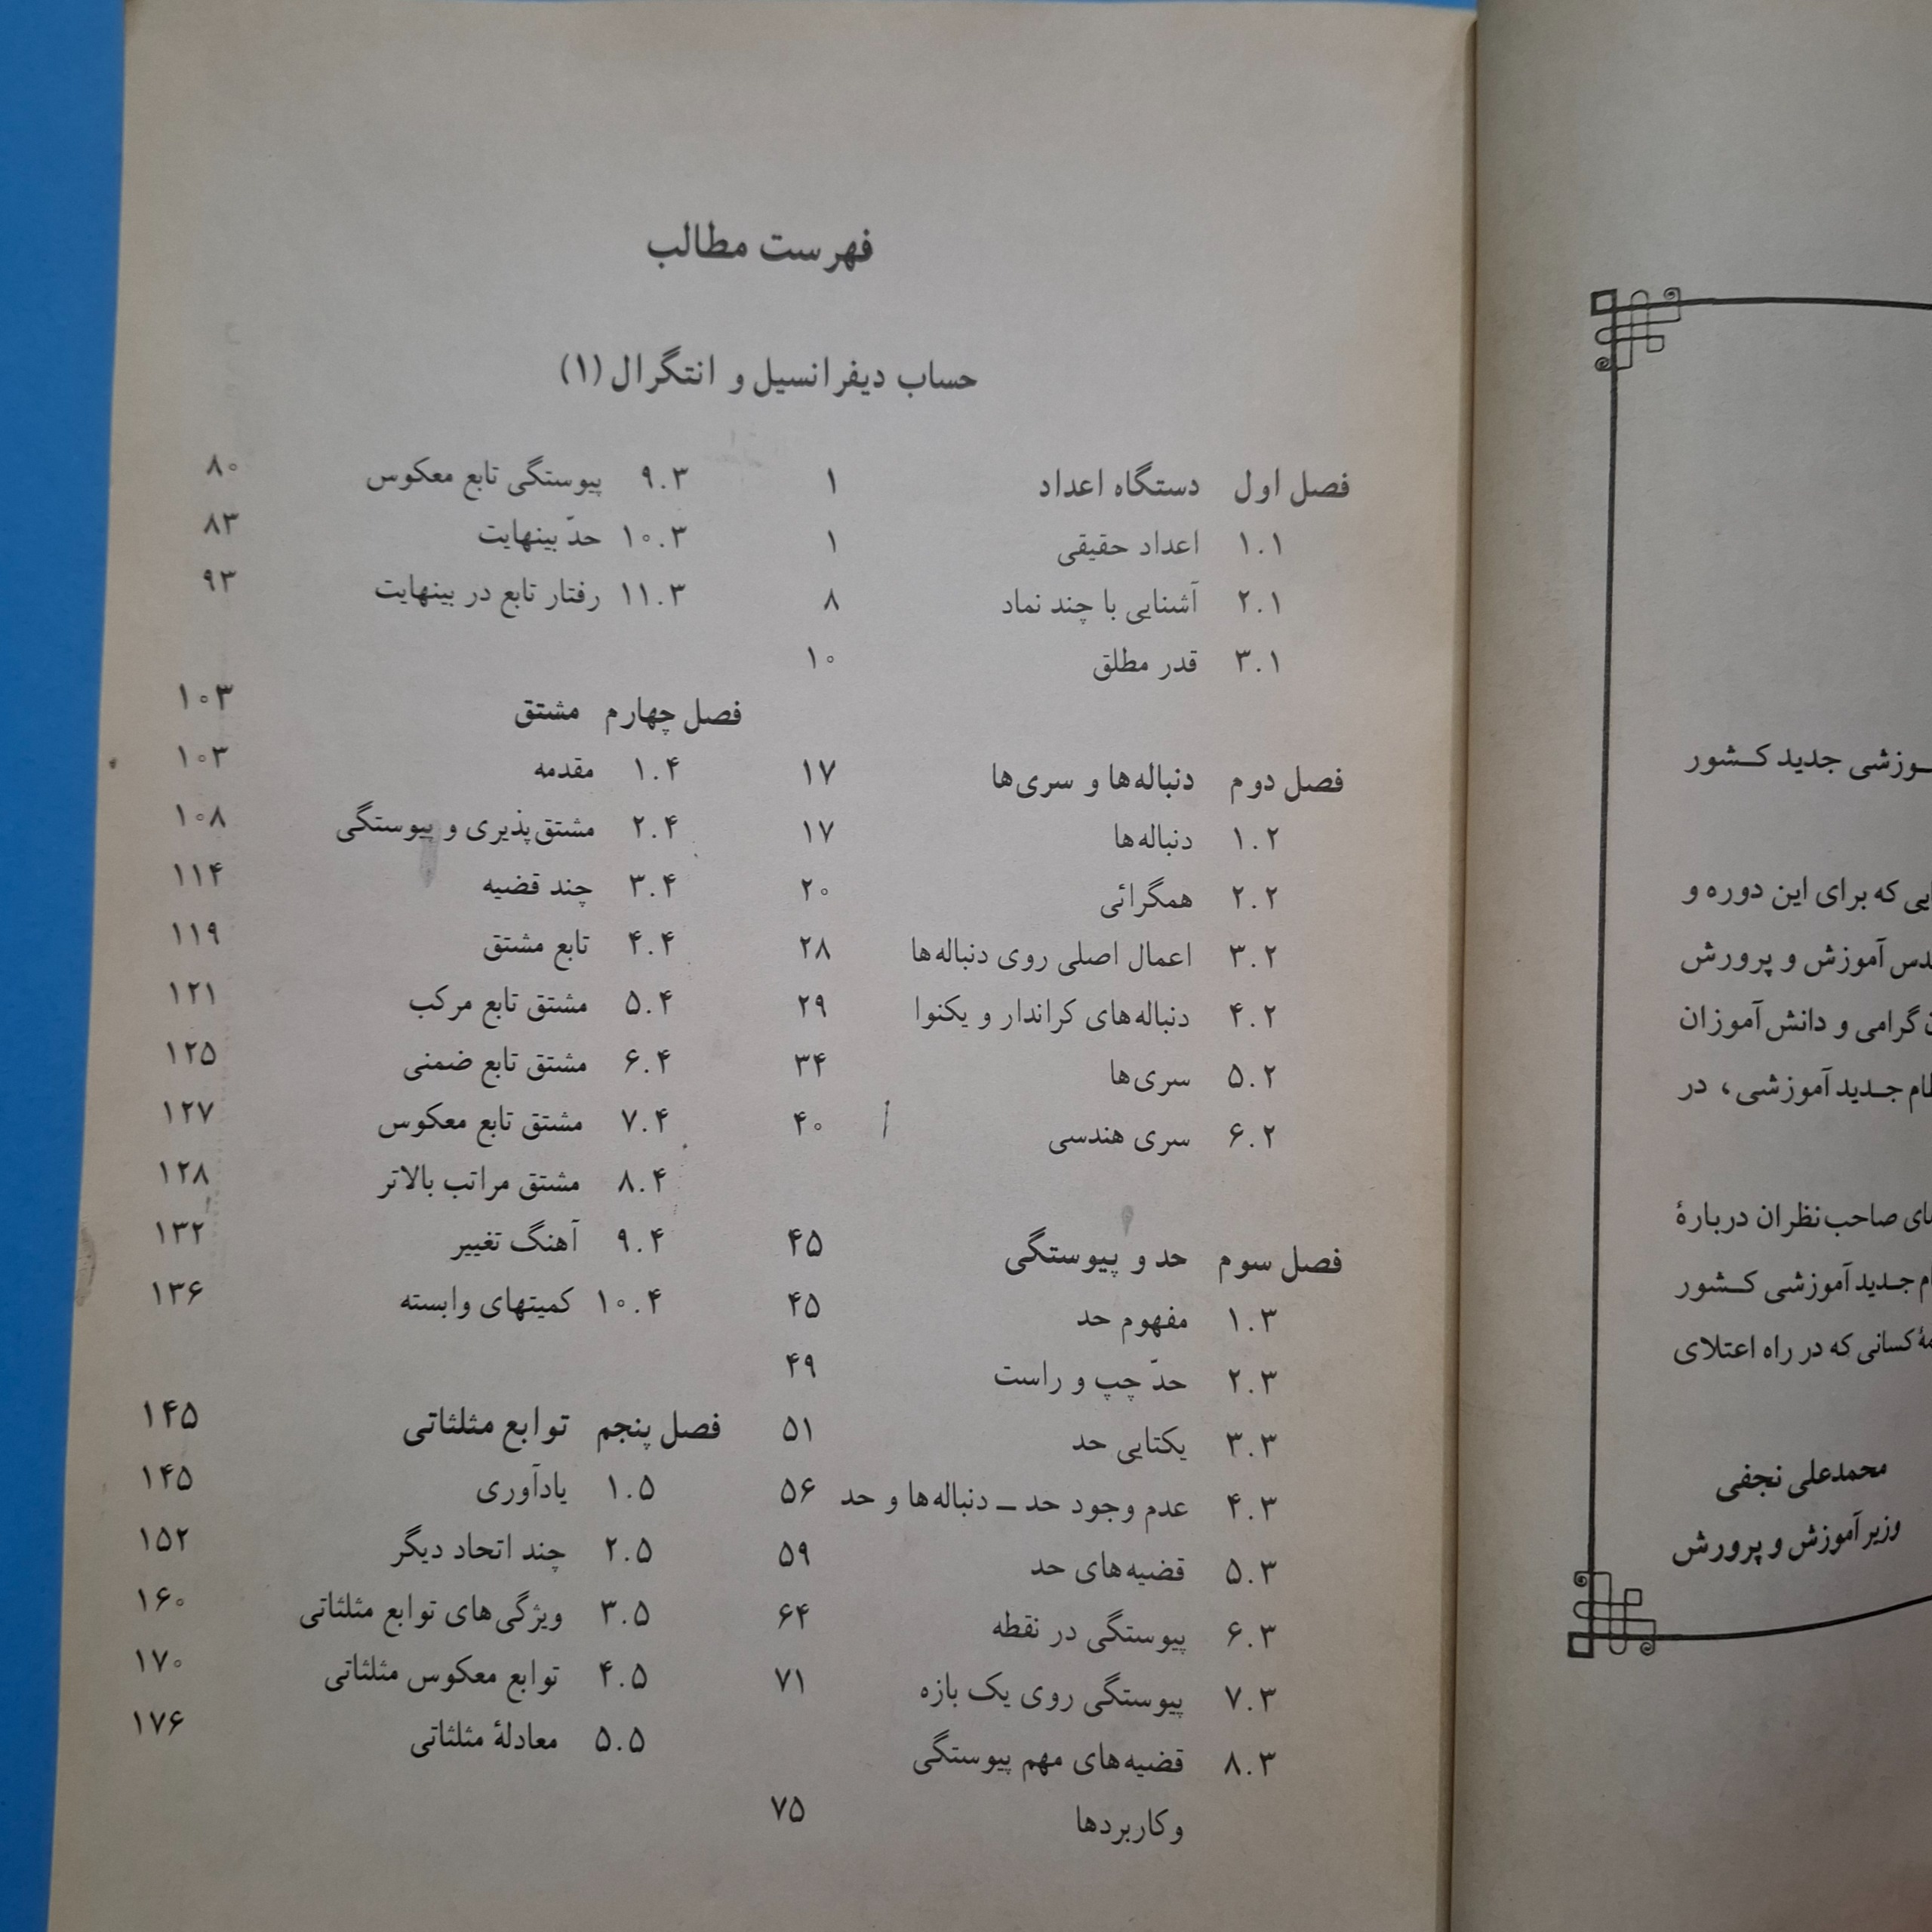 فهرست مطالب
حساب دیفرانسیل و انتگرال (۱)
فصل اول دستگاه اعداد ۱
۱.۱ اعداد حقیقی ۱
۲.۱ آشنایی با چند نماد ۸
۳.۱ قدر مطلق ۱۰
فصل دوم دنباله‌ها و سری‌ها ۱۷
۱.۲ دنباله‌ها ۱۷
۲.۲ همگرائی ۲۰
۳.۲ اعمال اصلی روی دنباله‌ها ۲۸
۴.۲ دنباله‌های کراندار و یکنوا ۲۹
۵.۲ سری‌ها ۳۴
۶.۲ سری هندسی ۴۰
فصل سوم حد و پیوستگی ۴۵
۱.۳ مفهوم حد ۴۵
۲.۳ حدّ چپ و راست ۴۹
۳.۳ یکتایی حد ۵۱
۴.۳ عدم وجود حد ــ دنباله‌ها و حد ۵۶
۵.۳ قضیه‌های حد ۵۹
۶.۳ پیوستگی در نقطه ۶۴
۷.۳ پیوستگی روی یک بازه ۷۱
۸.۳ قضیه‌های مهم پیوستگی
و کاربردها ۷۵
۹.۳ پیوستگی تابع معکوس ۸۰
۱۰.۳ حدّ بینهایت ۸۳
۱۱.۳ رفتار تابع در بینهایت ۹۳
فصل چهارم مشتق ۱۰۳
۱.۴ مقدمه ۱۰۳
۲.۴ مشتق‌پذیری و پیوستگی ۱۰۸
۳.۴ چند قضیه ۱۱۴
۴.۴ تابع مشتق ۱۱۹
۵.۴ مشتق تابع مرکب ۱۲۱
۶.۴ مشتق تابع ضمنی ۱۲۵
۷.۴ مشتق تابع معکوس ۱۲۷
۸.۴ مشتق مراتب بالاتر ۱۲۸
۹.۴ آهنگ تغییر ۱۳۲
۱۰.۴ کمیتهای وابسته ۱۳۶
فصل پنجم توابع مثلثاتی ۱۴۵
۱.۵ یادآوری ۱۴۵
۲.۵ چند اتحاد دیگر ۱۵۲
۳.۵ ویژگی‌های توابع مثلثاتی ۱۶۰
۴.۵ توابع معکوس مثلثاتی ۱۷۰
۵.۵ معادلهٔ مثلثاتی ۱۷۶
جدید کــشور
که برای این دوره و
آموزش و پرورش
گرامی و دانش‌آموزان
جـدید آموزشی، در
صاحب‌نظران دربارهٔ
جـدید آموزشی کــشور
کسانی که در راه اعتلای
محمدعلی نجفی
وزیر آموزش و پرورش